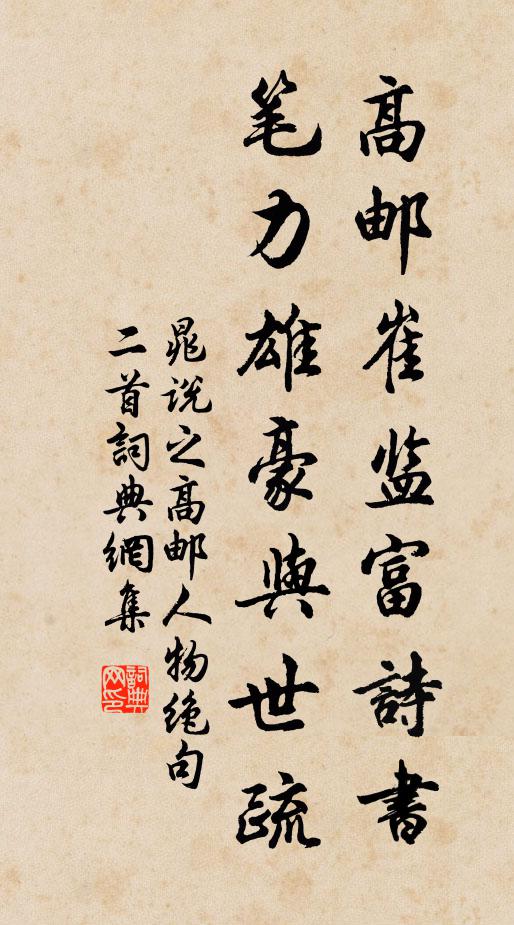 高邮崔监富詩書
笔力雄豪與世疏
晁说之高邮人物绝句
二首詞典網集
詞典网印